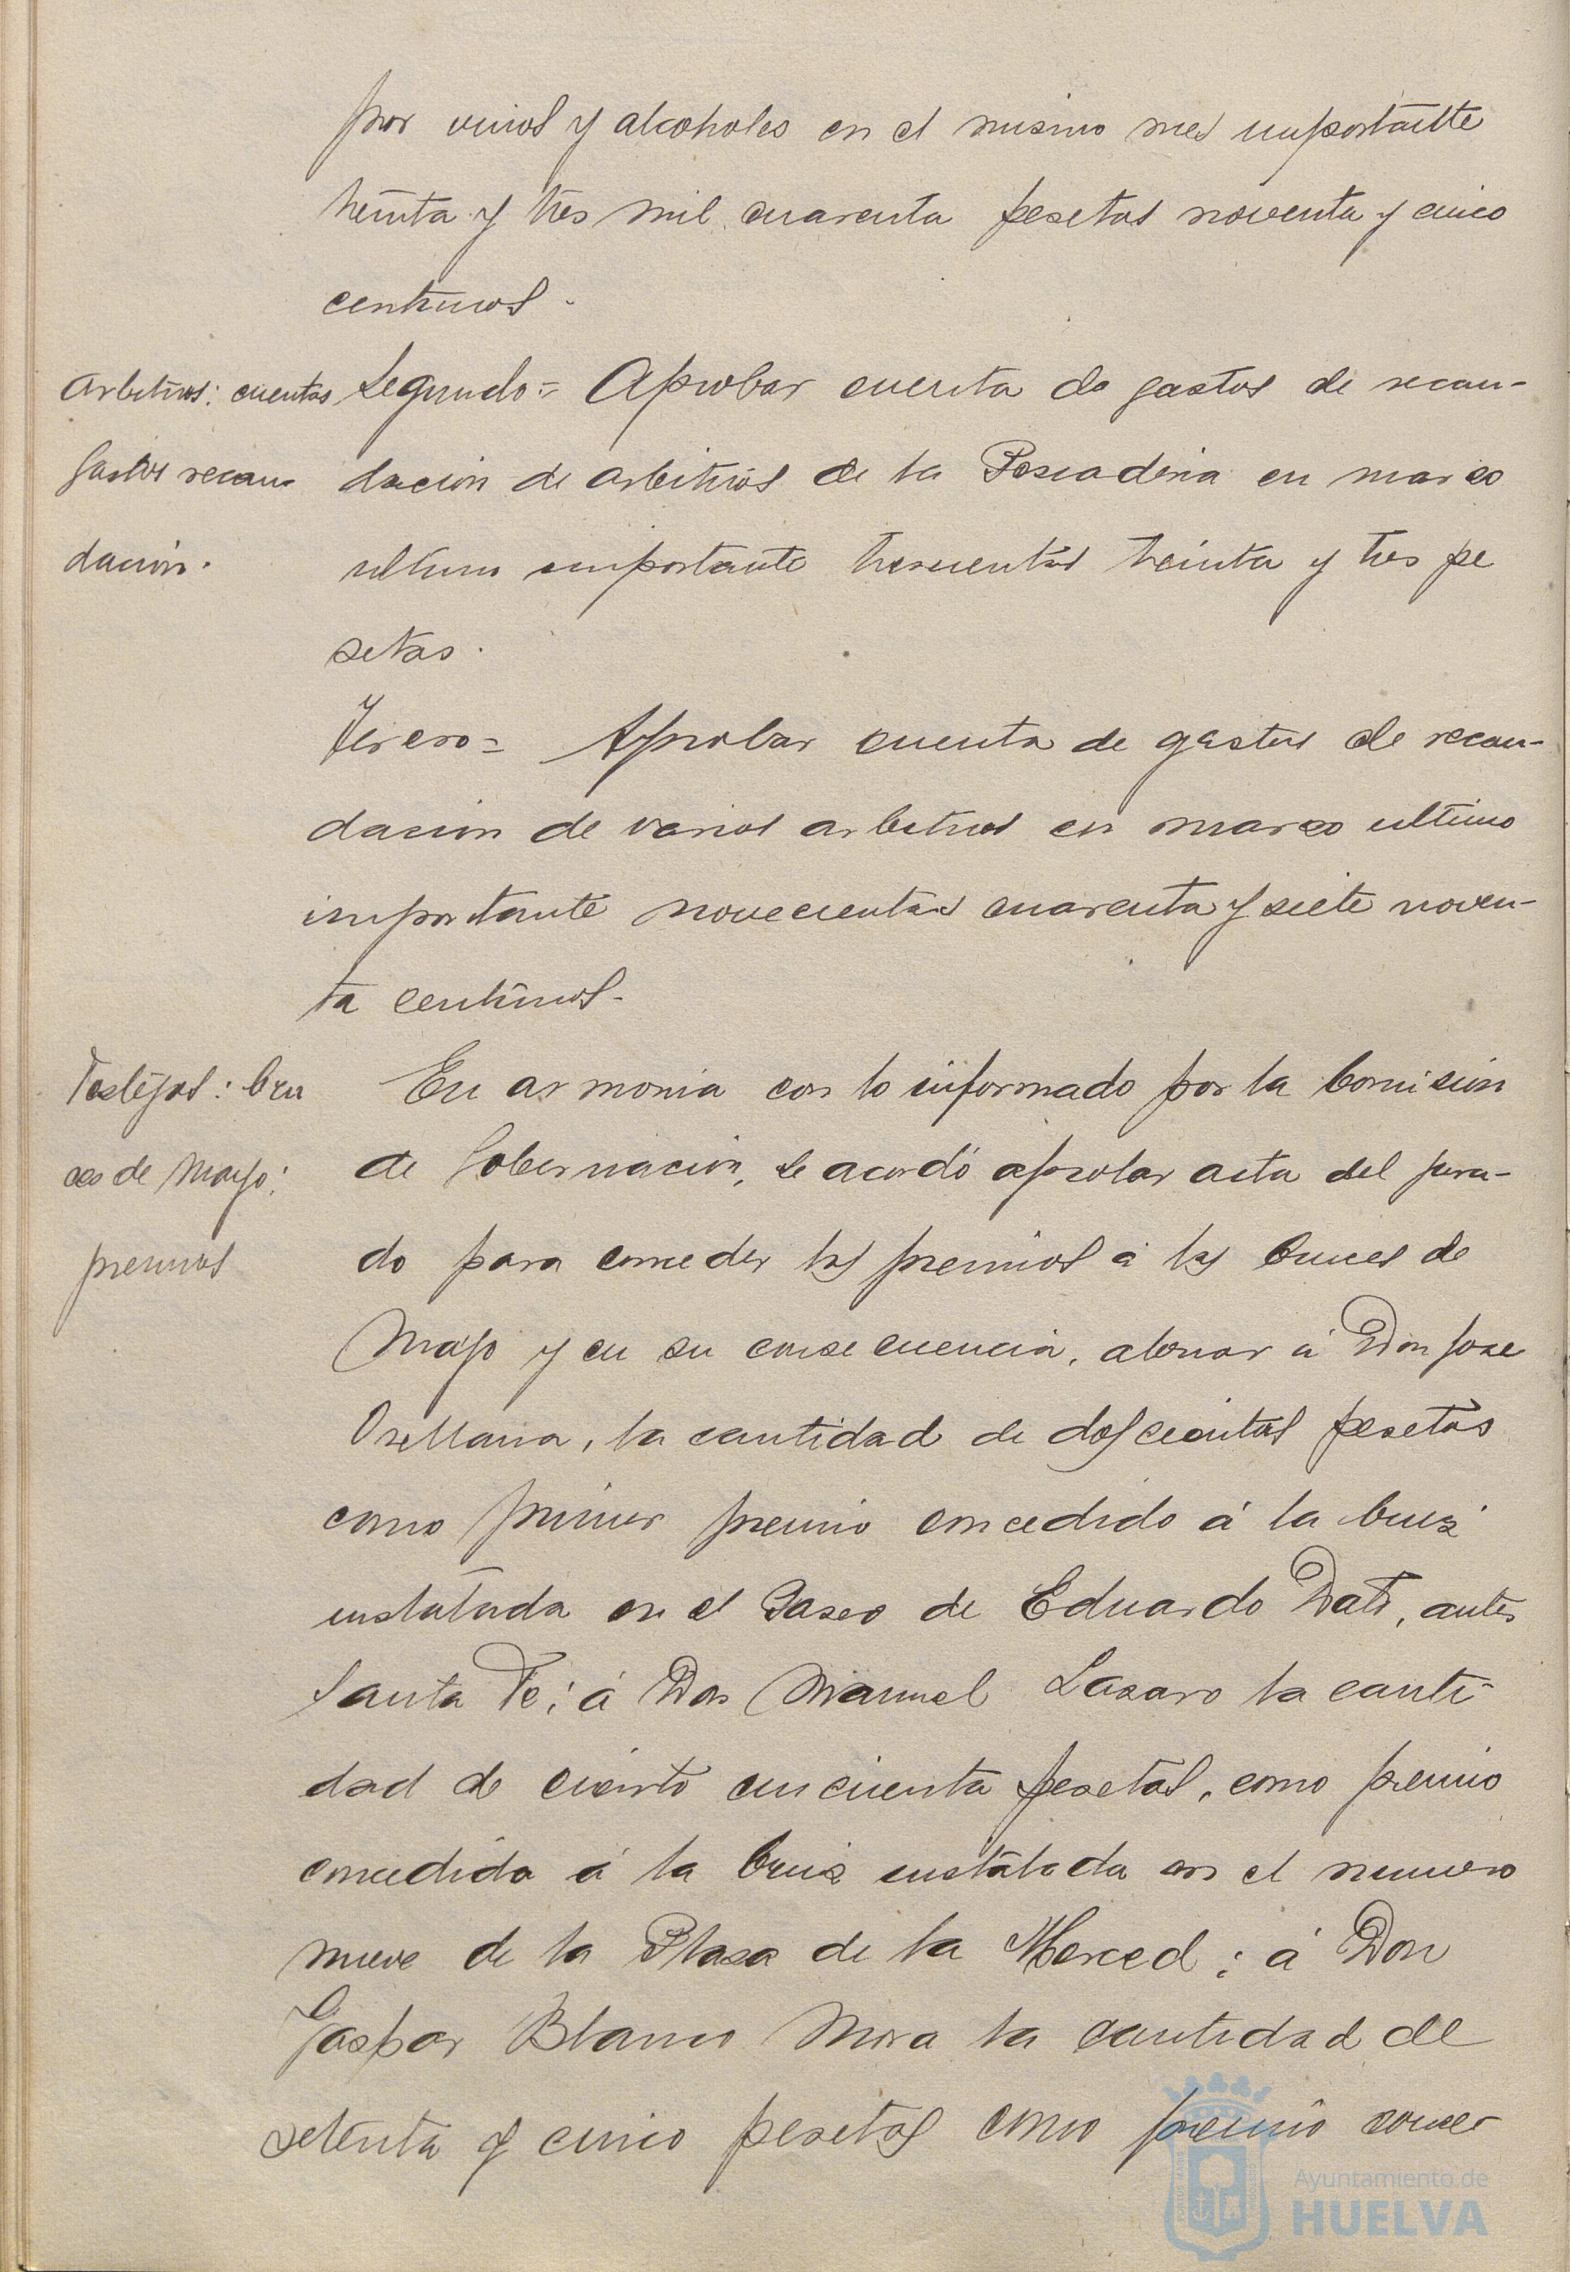 por vinos y alcoholes en el mismo mes importante
treinta y tres mil cuarenta pesetas noventa y cinco
centimos.
Arbitrios: cuentas
gastos recau-
dación.
Segundo = Aprobar cuenta de gastos de recau-
dación de arbitrios de la Pescaderia en marzo
ultimo importante trescientas treinta y tres pe
setas.
Tercero = Aprobar cuenta de gastos de recau-
dación de varios arbitrios en marzo ultimo
importante novecientas cuarenta y siete noven-
ta centimos.
Festejos: Cru
ces de Mayo:
premios
En armonia con lo informado por la Comisión
de Gobernación, se acordó aprobar acta del jura-
do para conceder los premios á las Cruces de
Mayo y en su consecuencia, abonar á Don Jose
Orellana, la cantidad de doscientas pesetas
como primer premio concedido á la Cruz
instalada en el Paseo de Eduardo Dato, antes
Santa Fe; á Don Manuel Lazaro la canti-
dad de ciento cincuenta pesetas, como premio
concedido á la Cruz instalada en el numero
nueve de la Plaza de la Merced; á Don
Gaspar Blanco Mora la cantidad de
setenta y cinco pesetas como premio conce
Ayuntamiento de
HUELVA